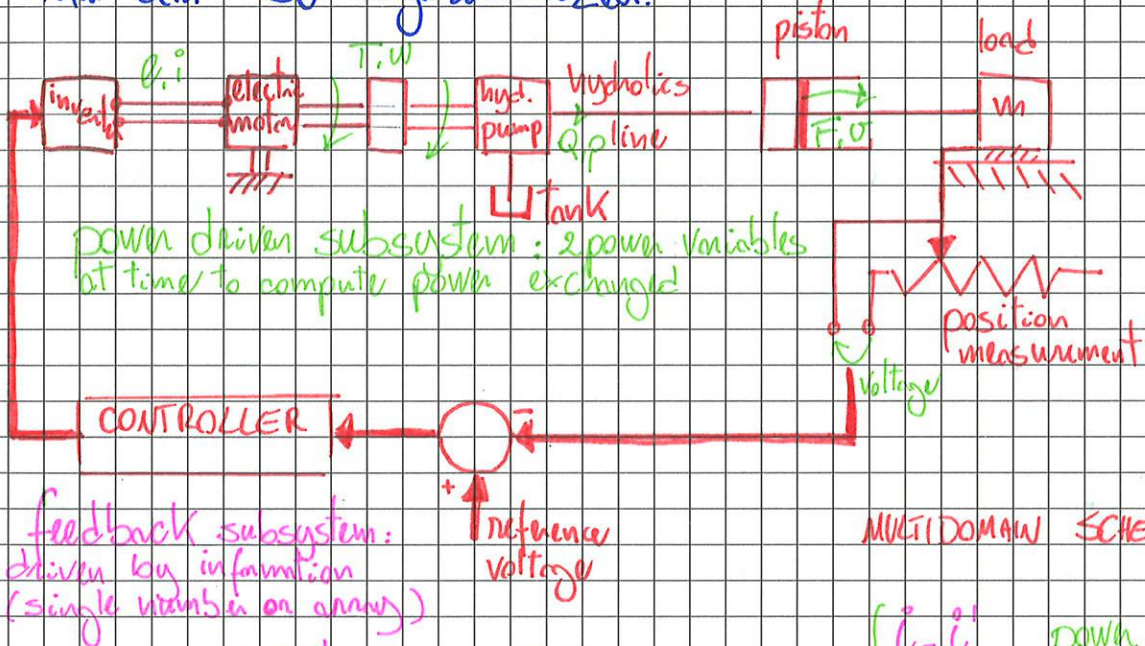 piston
load
e, i
T, ω
inverter
electric
motor
hyd.
pump
Hydrolics
line
Q, p
F, v
m
tank
power driven subsystem : 2 power variables
at time to compute power exchanged
position
measurement
voltage
CONTROLLER
-
+
reference
voltage
feedback subsystem:
driven by information
(single number or array)
MULTIDOMAIN SCHE
power